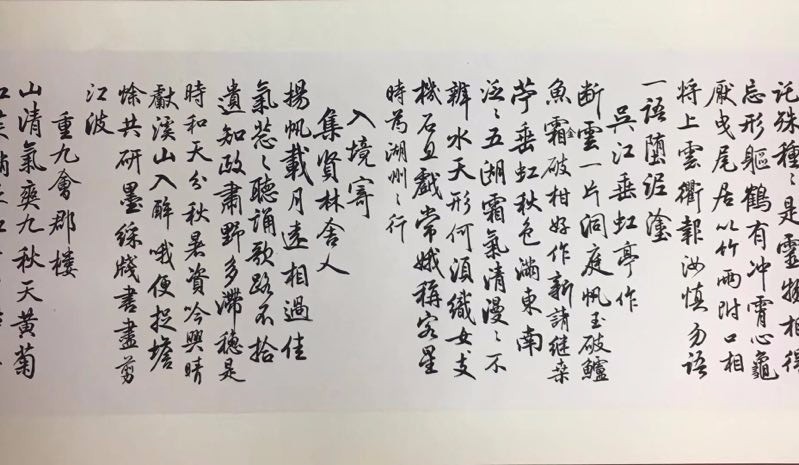 託殊種々是靈物相得
忘形軀鶴有沖霄心龜
厭曳尾居以竹兩附口相
将上雲衢報汝慎勿語
一語墮泥塗
吳江垂虹亭作
断雲一片洞庭帆玉破鱸
魚霜金破柑好作新詩継桑
苧垂虹秋色滿東南
泛々五湖霜氣清漫々不
辨水天形何須織女支
機石且戲常娥稱客星
時為湖州之行
入境寄
集賢林舍人
揚帆載月遠相過佳
氣蔥々聽誦歌路不拾
遺知政肅野多滯穗是
時和天分秋暑資吟興晴
獻溪山入醉哦便捉蟾
蜍共研墨綵牋書盡剪
江波
重九會郡樓
山清氣爽九秋天黃菊